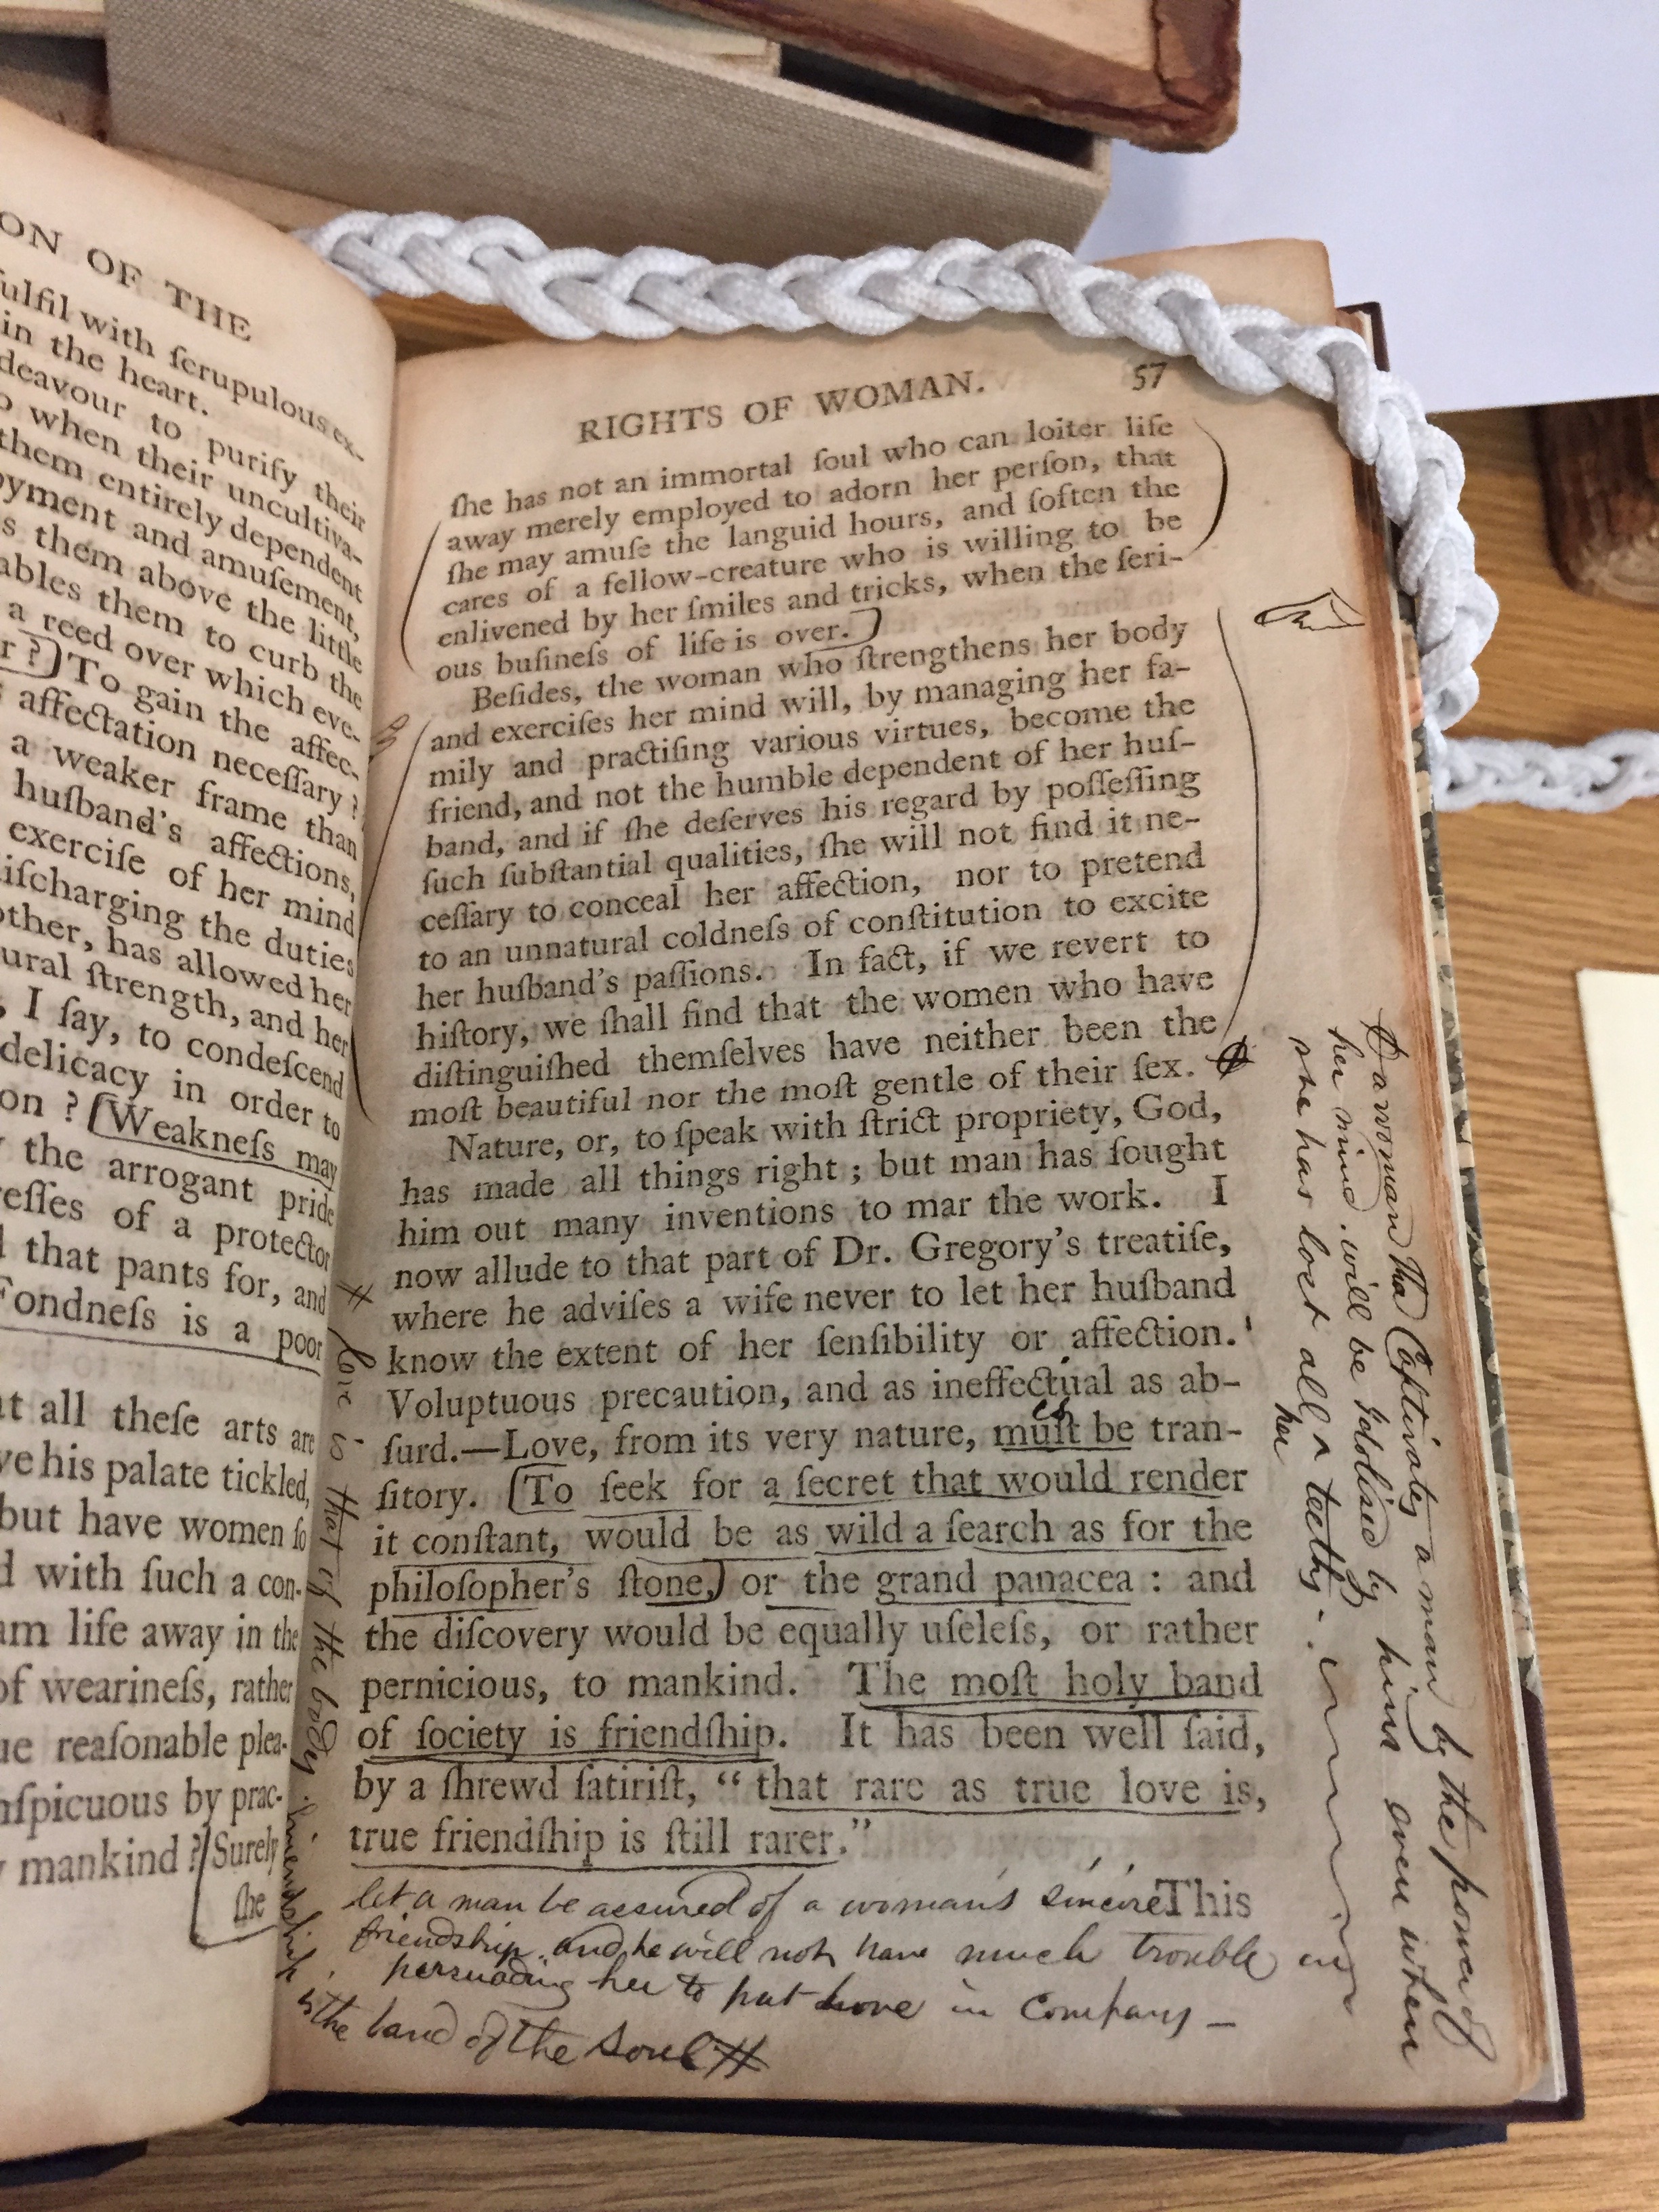 ON OF THE
ulfil with ſcrupulous ex-
in the heart.
deavour to purify their
o when their uncultiva-
them entirely dependent
oyment and amuſement,
s them above the little
ables them to curb the
a reed over which eve-
r ? To gain the affec-
s affectation neceſſary ?
a weaker frame than
huſband's affections,
exerciſe of her mind
iſcharging the duties
other, has allowed her
ural ſtrength, and her
, I ſay, to condeſcend
delicacy in order to
on ? Weakneſs may
y the arrogant pride
reſſes of a protector
d that pants for, and
Fondneſs is a poor
at all theſe arts are
ve his palate tickled,
but have women ſo
d with ſuch a con-
am life away in the
of wearineſs, rather
ue reaſonable plea-
nſpicuous by prac-
y mankind ? Surely
ſhe
RIGHTS OF WOMAN. 57
ſhe has not an immortal ſoul who can loiter life
away merely employed to adorn her perſon, that
ſhe may amuſe the languid hours, and ſoften the
cares of a fellow-creature who is willing to be
enlivened by her ſmiles and tricks, when the ſeri-
ous buſineſs of life is over.
Beſides, the woman who ſtrengthens her body
and exerciſes her mind will, by managing her fa-
mily and practiſing various virtues, become the
friend, and not the humble dependent of her huſ-
band, and if ſhe deſerves his regard by poſſeſſing
ſuch ſubſtantial qualities, ſhe will not find it ne-
ceſſary to conceal her affection, nor to pretend
to an unnatural coldneſs of conſtitution to excite
her huſband's paſſions. In fact, if we revert to
hiſtory, we ſhall find that the women who have
diſtinguiſhed themſelves have neither been the
moſt beautiful nor the moſt gentle of their ſex.
Nature, or, to ſpeak with ſtrict propriety, God,
has made all things right ; but man has ſought
him out many inventions to mar the work. I
now allude to that part of Dr. Gregory's treatiſe,
where he adviſes a wife never to let her huſband
know the extent of her ſenſibility or affection.
Voluptuous precaution, and as ineffectual as ab-
ſurd.—Love, from its very nature, muſt be tran-
ſitory. To ſeek for a ſecret that would render
it conſtant, would be as wild a ſearch as for the
philoſopher's ſtone, or the grand panacea : and
the diſcovery would be equally uſeleſs, or rather
pernicious, to mankind. The moſt holy band
of ſociety is friendſhip. It has been well ſaid,
by a ſhrewd ſatiriſt, “ that rare as true love is,
true friendſhip is ſtill rarer.”
This
let a man be assured of a woman's sincere
friendship and he will not have much trouble in
persuading her to put love in Company —
# love is that of the body. friendship
is the band of the Soul #
a woman that Captivates a man by the power of
her mind. will be Idolised by him even when
she has lost all her teeth.